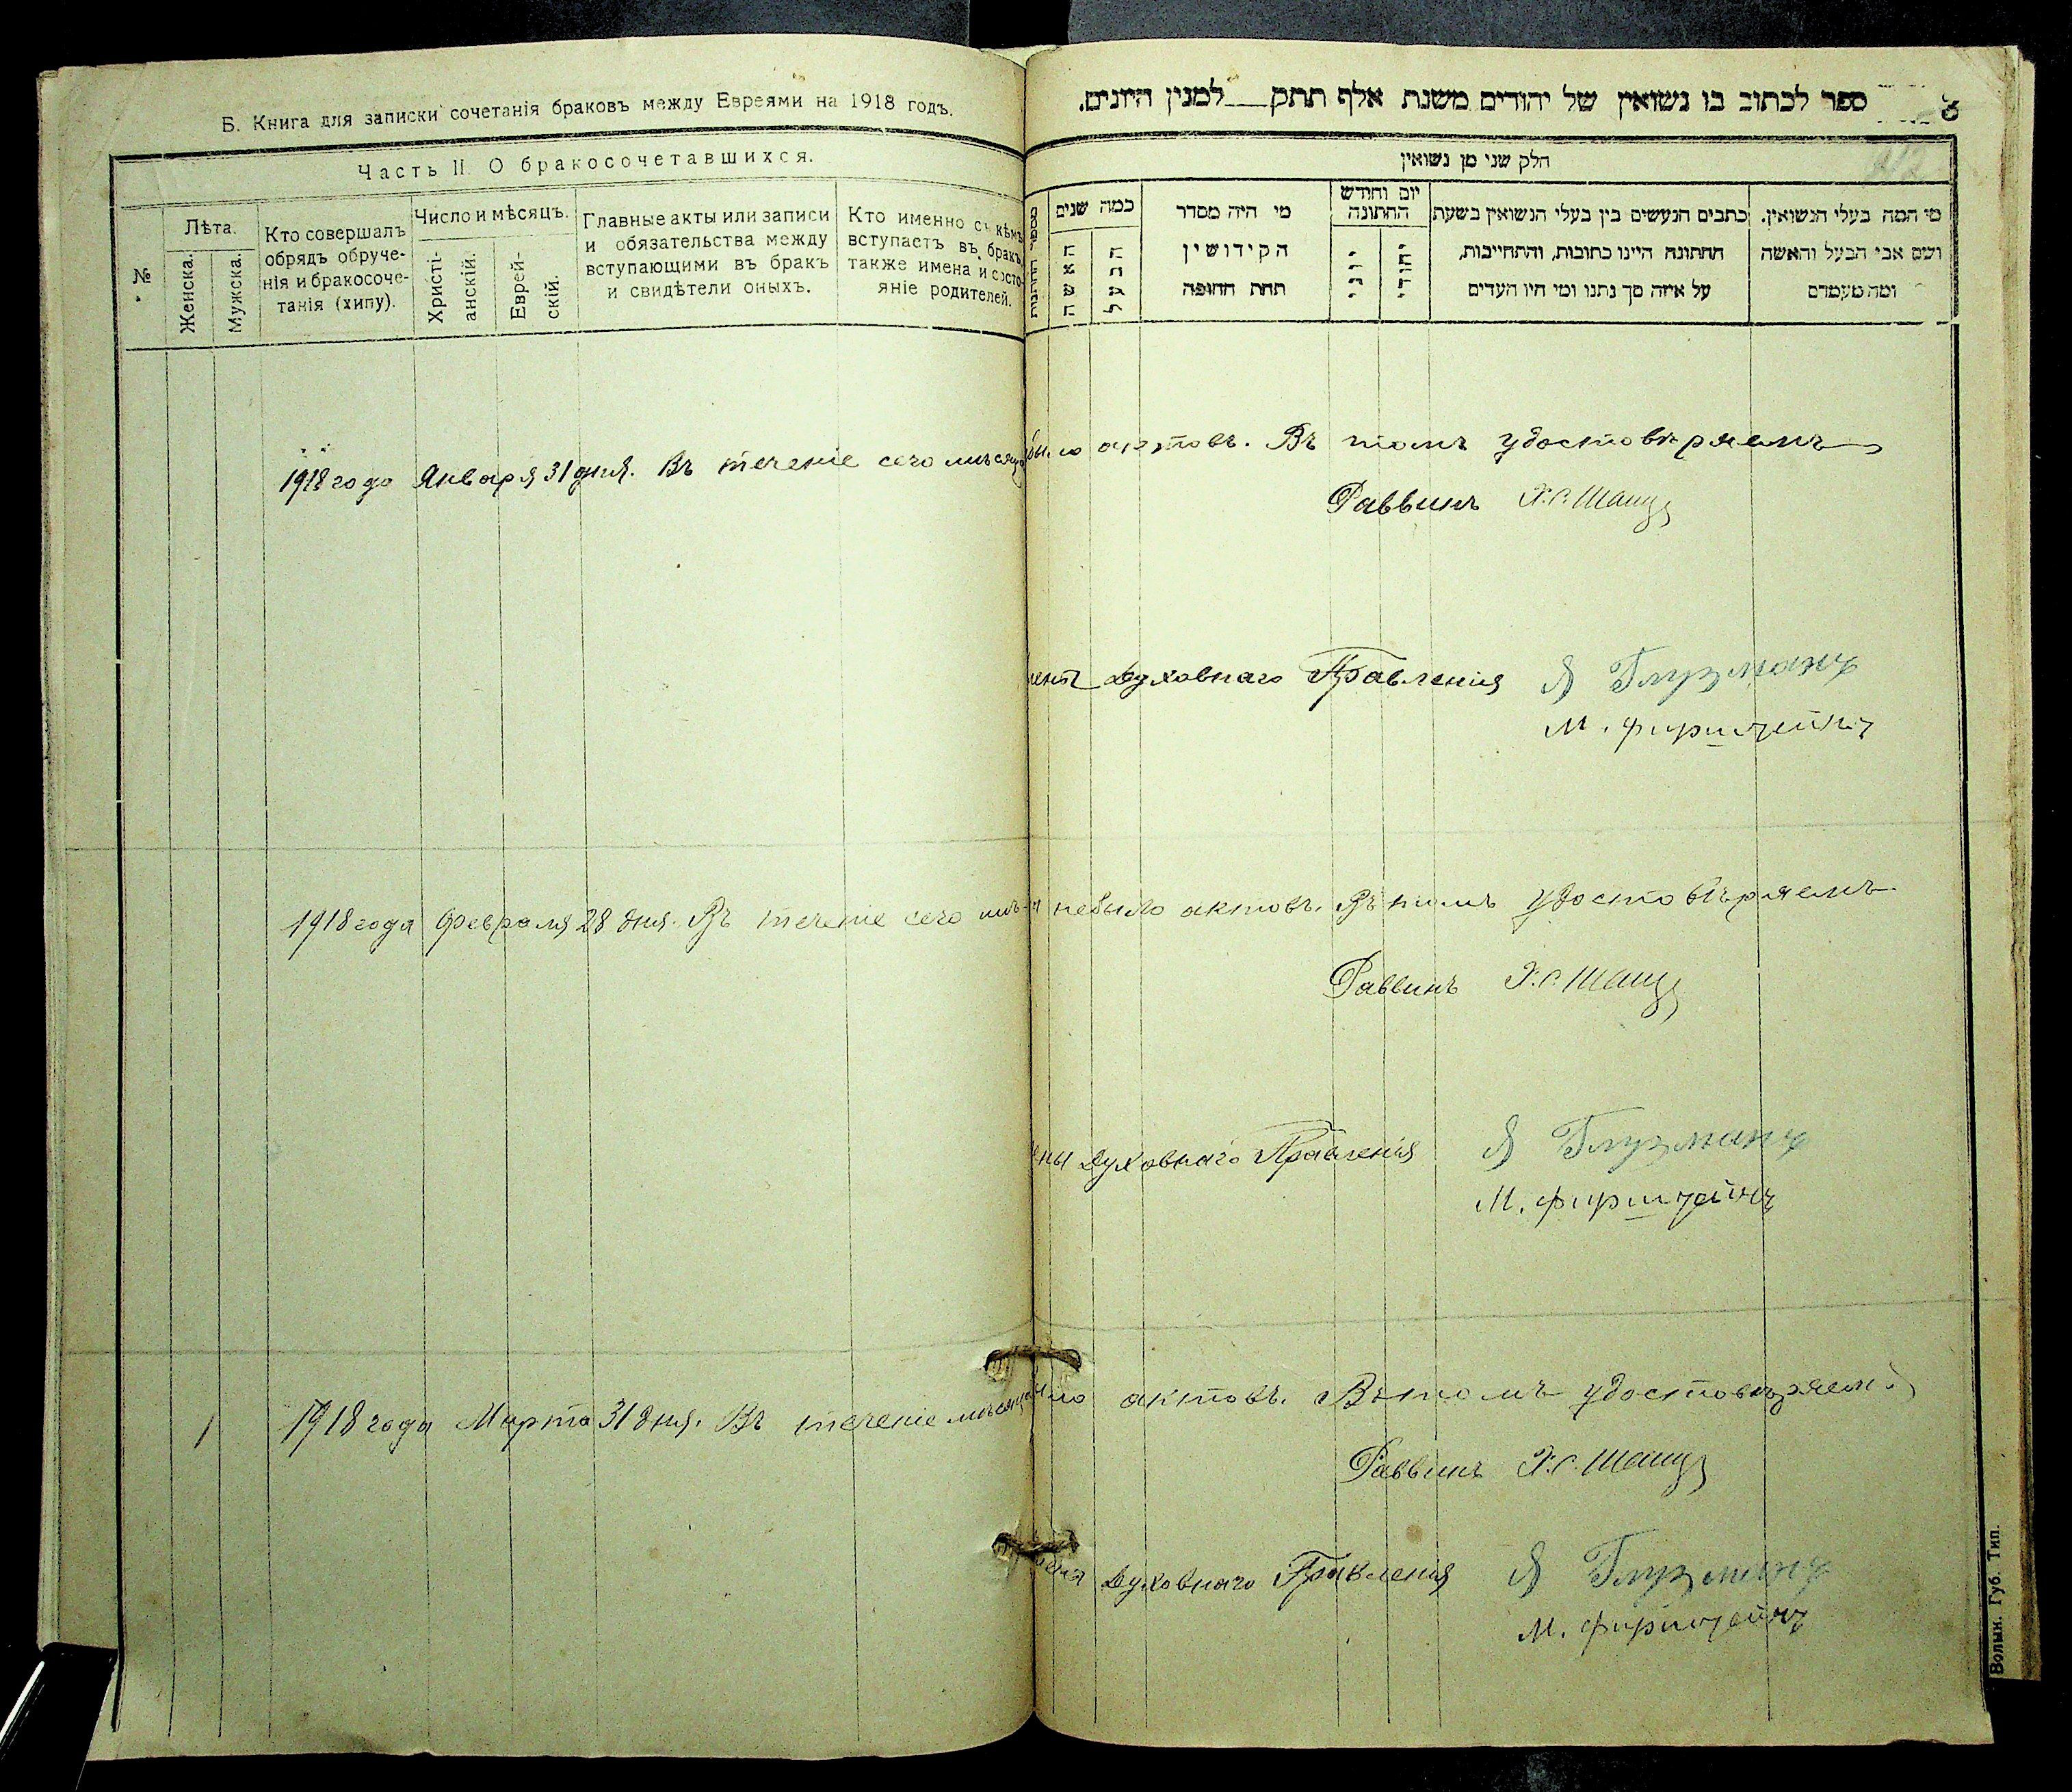 Б. Книга для записки сочетанія браковъ между Евреями на 1918 годъ.
Часть II. О бракосочетавшихся.
№
Лѣта.
Женска.
Мужска.
Кто совершалъ
обрядъ обруче-
нія и бракосоче-
танія (хипу).
Число и мѣсяцъ.
Христі-
анскій.
Еврей-
скій.
Главные акты или записи
и обязательства между
вступающими въ бракъ
и свидѣтели оныхъ.
Кто именно съ кѣмъ
вступаетъ въ бракъ
также имена и состо-
яніе родителей.
ספר לכתוב בו נשואין של יהודים משנת אלף תתק למנין היונים.
חלק שני מן נשואין
מספר החתונות
כמה שנים
האשה
הבעל
מי היה מסדר
הקידושין
תחת החופה
יום וחודש
החתונה
יוני
יהודי
כתבים הנעשים בין בעלי הנשואין בשעת
החתונה היינו כתובות, והתחייבות,
על איזה סך נתנו ומי היו העדים
מי המה בעלי הנשואין.
ושם אבי הבעל והאשה
ומה מעמדם
1918 года Января 31 дня. Въ теченіе сего мѣсяца было актовъ. Въ томъ удостовѣряемъ
Раввинъ Х.С. Шанц
Духовнаго Правленія Я Глузманъ
М. Фирштейнъ
1918 года Февраля 28 дня. Въ теченіе сего мѣ-а небыло актовъ. Въ томъ удостовѣряемъ.
Раввинъ Х.С. Шанц
ены Духовнаго Правленія Я Глузманъ
М. Фирштейнъ
1918 года Марта 31 дня. Въ теченіе мѣсяца ыло актовъ. Въ томъ удостовѣряем.
Раввинъ Х.С. Шанц
Духовнаго Правленія Я Глузманъ
М. Фирштейнъ
Волын. Губ. Тип.